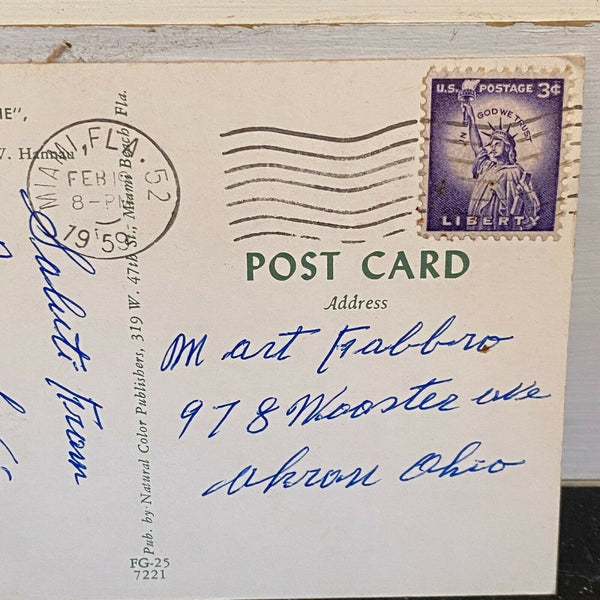 HE",
W. Hannau
MIAMI, FLA. 52
FEB 1
8-P
1959
Saluti from
Pub. by Natural Color Publishers, 319 W. 47th St., Miami Beach, Fla.
FG-25
7221
U.S. POSTAGE 3¢
IN GOD WE TRUST
LIBERTY
POST CARD
Address
M art Fabbro
978 Wooster ave
Akron Ohio